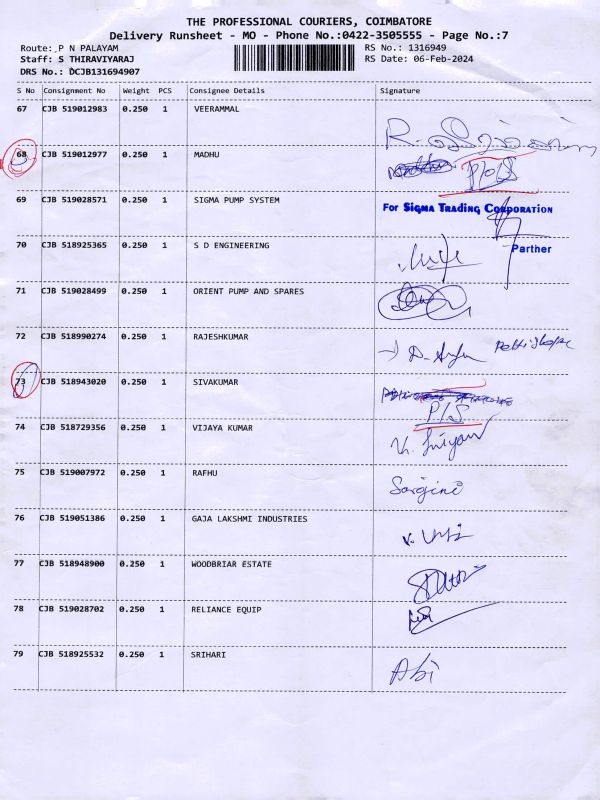 THE PROFESSIONAL COURIERS, COIMBATORE
Delivery Runsheet - MO - Phone No.:0422-3505555 - Page No.:7
Route: P N PALAYAM RS No.: 1316949
Staff: S THIRAVIYARAJ RS Date: 06-Feb-2024
DRS No.: DCJB131694907
S No Consignment No Weight PCS Consignee Details Signature
67 CJB 519012983 0.250 1 VEERAMMAL
68 CJB 519012977 0.250 1 MADHU
69 CJB 519028571 0.250 1 SIGMA PUMP SYSTEM For SIGMA TRADING CORPORATION
70 CJB 518925365 0.250 1 S D ENGINEERING Partner
71 CJB 519028499 0.250 1 ORIENT PUMP AND SPARES
72 CJB 518990274 0.250 1 RAJESHKUMAR
73 CJB 518943020 0.250 1 SIVAKUMAR
P/S
74 CJB 518729356 0.250 1 VIJAYA KUMAR
75 CJB 519007972 0.250 1 RAFHU Sargini
76 CJB 519051386 0.250 1 GAJA LAKSHMI INDUSTRIES
77 CJB 518948900 0.250 1 WOODBRIAR ESTATE
78 CJB 519028702 0.250 1 RELIANCE EQUIP
79 CJB 518925532 0.250 1 SRIHARI Abi